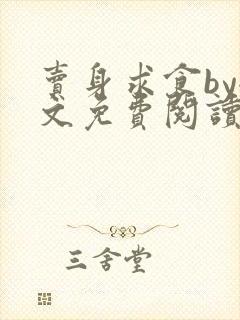 賣身求食by
文免費閱讀
三舍堂